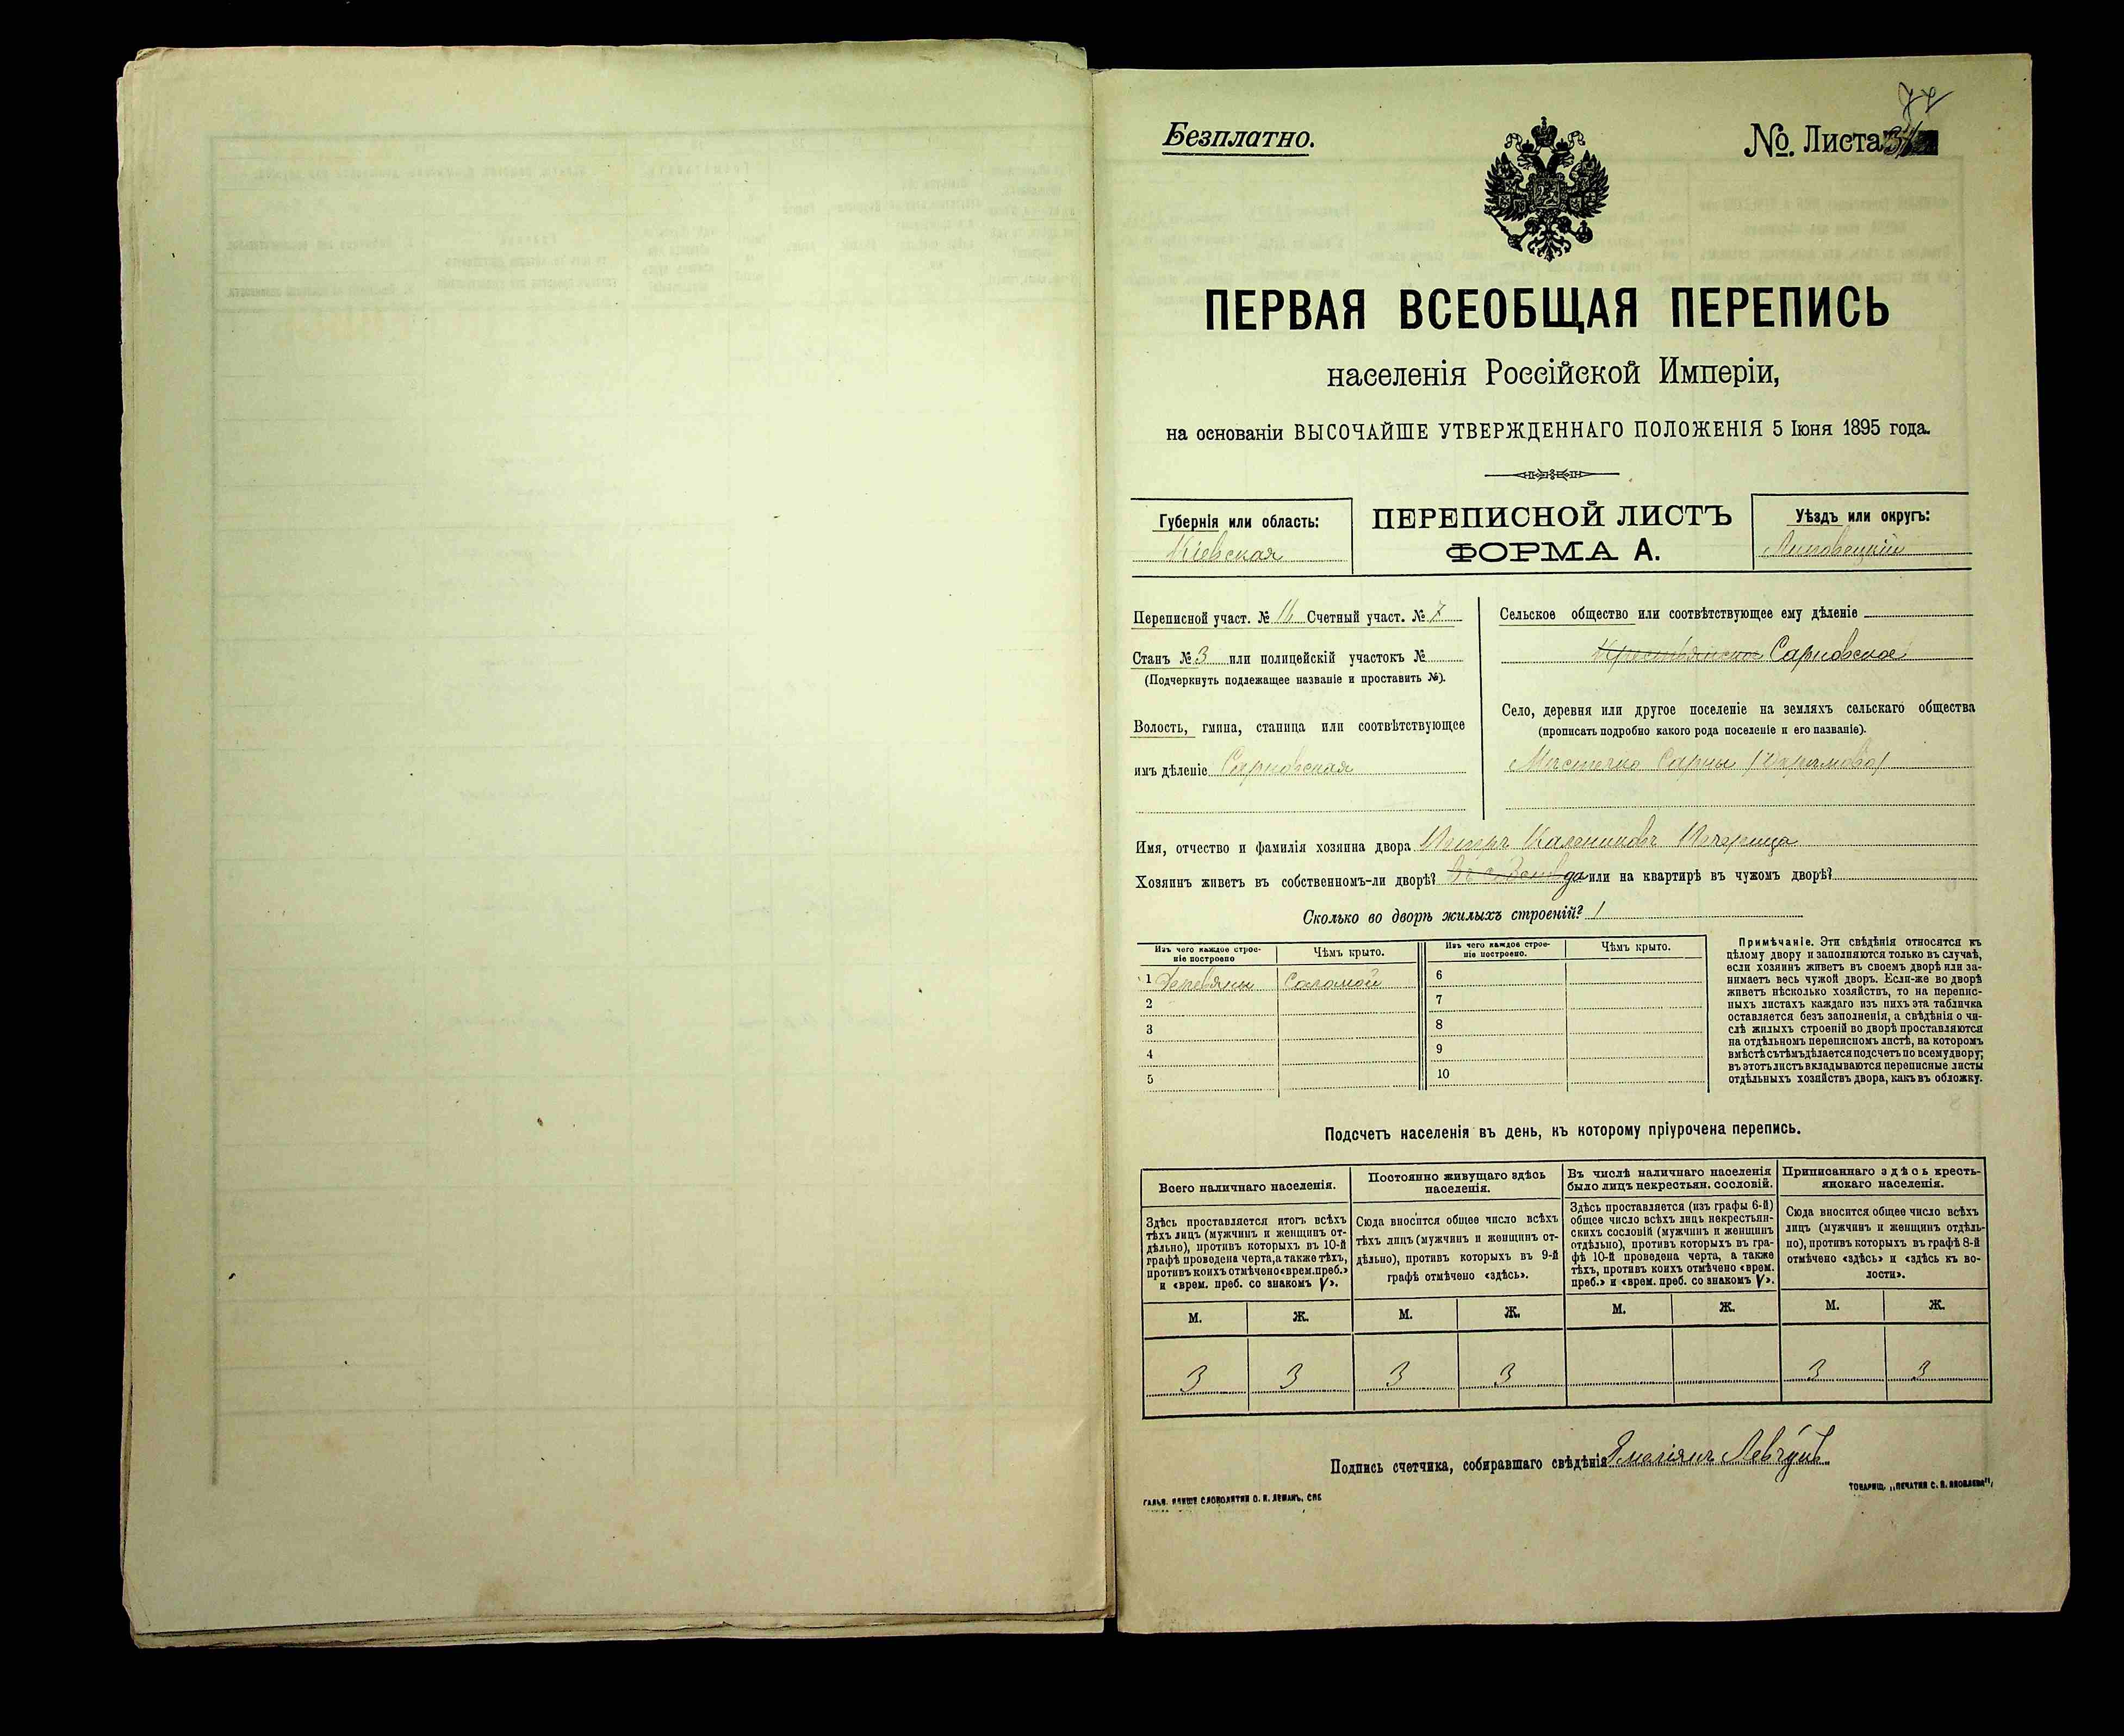 Безплатно.
№. Листа 34
ПЕРВАЯ ВСЕОБЩАЯ ПЕРЕПИСЬ
населенія Россійской Имперіи,
на основаніи ВЫСОЧАЙШЕ УТВЕРЖДЕННАГО ПОЛОЖЕНІЯ 5 Іюня 1895 года.
Губернія или область:
Кіевская
ПЕРЕПИСНОЙ ЛИСТЪ
ФОРМА А.
Уѣздъ или округъ:
Липовецкій
Переписной участ. № 16 Счетный участ. № 7
Станъ № 3 или полицейскій участокъ №
(Подчеркнуть подлежащее названіе и проставить №).
Волость, гмина, станица или соотвѣтствующее
имъ дѣленіе Сарновская
Сельское общество или соотвѣтствующее ему дѣленіе
Крестьянское Сарновское
Село, деревня или другое поселеніе на земляхъ сельскаго общества
(прописать подробно какого рода поселеніе и его названіе).
Мѣстечко Сарны
Имя, отчество и фамилія хозяина двора Каленниковъ Печерица
Хозяинъ живетъ въ собственномъ-ли дворѣ? да или на квартирѣ въ чужомъ дворѣ?
Сколько во дворѣ жилыхъ строеній? 1
Изъ чего каждое строе-
ніе построено
Чѣмъ крыто.
Изъ чего каждое строе-
ніе построено.
Чѣмъ крыто.
1 Деревяны Соломой
2
3
4
5
6
7
8
9
10
Примѣчаніе. Эти свѣдѣнія относятся къ
цѣлому двору и заполняются только въ случаѣ,
если хозяинъ живетъ въ своемъ дворѣ или за-
нимаетъ весь чужой дворъ. Если-же во дворѣ
живетъ нѣсколько хозяйствъ, то на перепис-
ныхъ листахъ каждаго изъ нихъ эта табличка
оставляется безъ заполненія, а свѣдѣнія о чи-
слѣ жилыхъ строеній во дворѣ проставляются
на отдѣльномъ переписномъ листѣ, на которомъ
вмѣстѣ съ тѣмъ дѣлается подсчетъ по всему двору;
въ этотъ листъ вкладываются переписные листы
отдѣльныхъ хозяйствъ двора, какъ въ обложку.
Подсчетъ населенія въ день, къ которому пріурочена перепись.
Всего наличнаго населенія.
Здѣсь проставляется итогъ всѣхъ
тѣхъ лицъ (мужчинъ и женщинъ от-
дѣльно), противъ которыхъ въ 10-й
графѣ проведена черта, а также тѣхъ,
противъ коихъ отмѣчено «врем. преб.»
и «врем. преб. со знакомъ V».
Постоянно живущаго здѣсь
населенія.
Сюда вносится общее число всѣхъ
тѣхъ лицъ (мужчинъ и женщинъ от-
дѣльно), противъ которыхъ въ 9-й
графѣ отмѣчено «здѣсь».
Въ числѣ наличнаго населенія
было лицъ некрестьян. сословій.
Здѣсь проставляется (изъ графы 6-й)
общее число всѣхъ лицъ некрестьян-
скихъ сословій (мужчинъ и женщинъ
отдѣльно), противъ которыхъ въ гра-
фѣ 10-й проведена черта, а также
тѣхъ, противъ коихъ отмѣчено «врем.
преб.» и «врем. преб. со знакомъ V».
Приписаннаго здѣсь кресть-
янскаго населенія.
Сюда вносится общее число всѣхъ
лицъ (мужчинъ и женщинъ отдѣль-
но), противъ которыхъ въ графѣ 8-й
отмѣчено «здѣсь» и «здѣсь къ во-
лости».
М. Ж. М. Ж. М. Ж. М. Ж.
3 3 3 3 3 3
Подпись счетчика, собиравшаго свѣдѣнія Емеліянъ Левчукъ
ГАЛЬВ. КЛИШЕ СЛОВОЛИТНИ О. И. ЛЕМАНЪ, СПБ
ТОВАРИЩ. „ПЕЧАТНЯ С. П. ЯКОВЛЕВА",